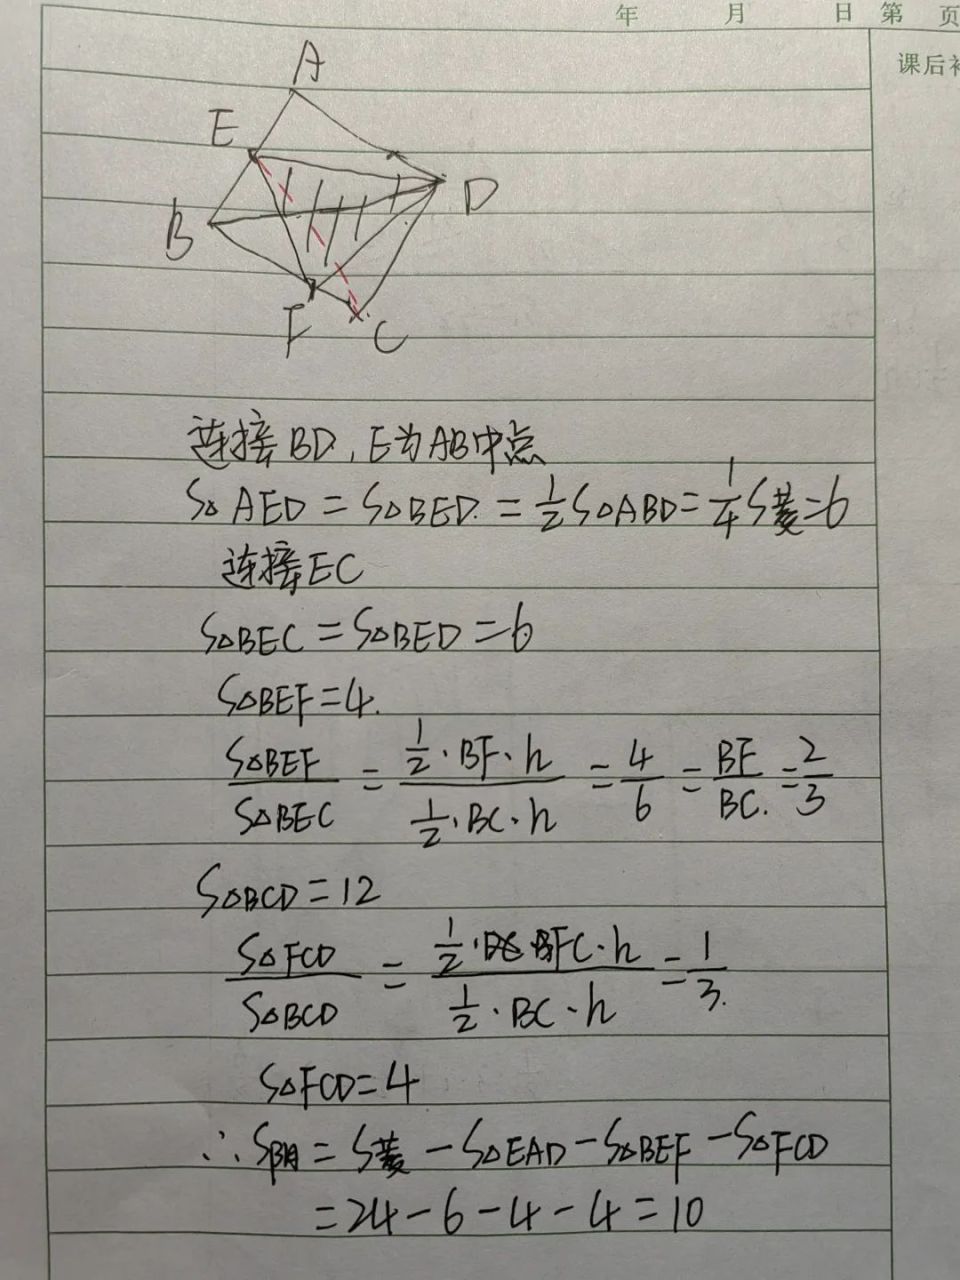 年 月 日 第 页
课后补
A
E
D
B
F
C
连接BD,E为AB中点
S△AED=S△BED.=1/2S△ABD=1/4S菱=6
连接EC
S△BEC=S△BED=6
S△BEF=4.
S△BEF/S△BEC=1/2·BF·h/1/2·BC·h=4/6=BF/BC.=2/3
S△BCD=12
S△FCD/S△BCD=1/2·FC·h/1/2·BC·h=1/3.
S△FCD=4
∴S阴=S菱-S△EAD-S△BEF-S△FCD
=24-6-4-4=10